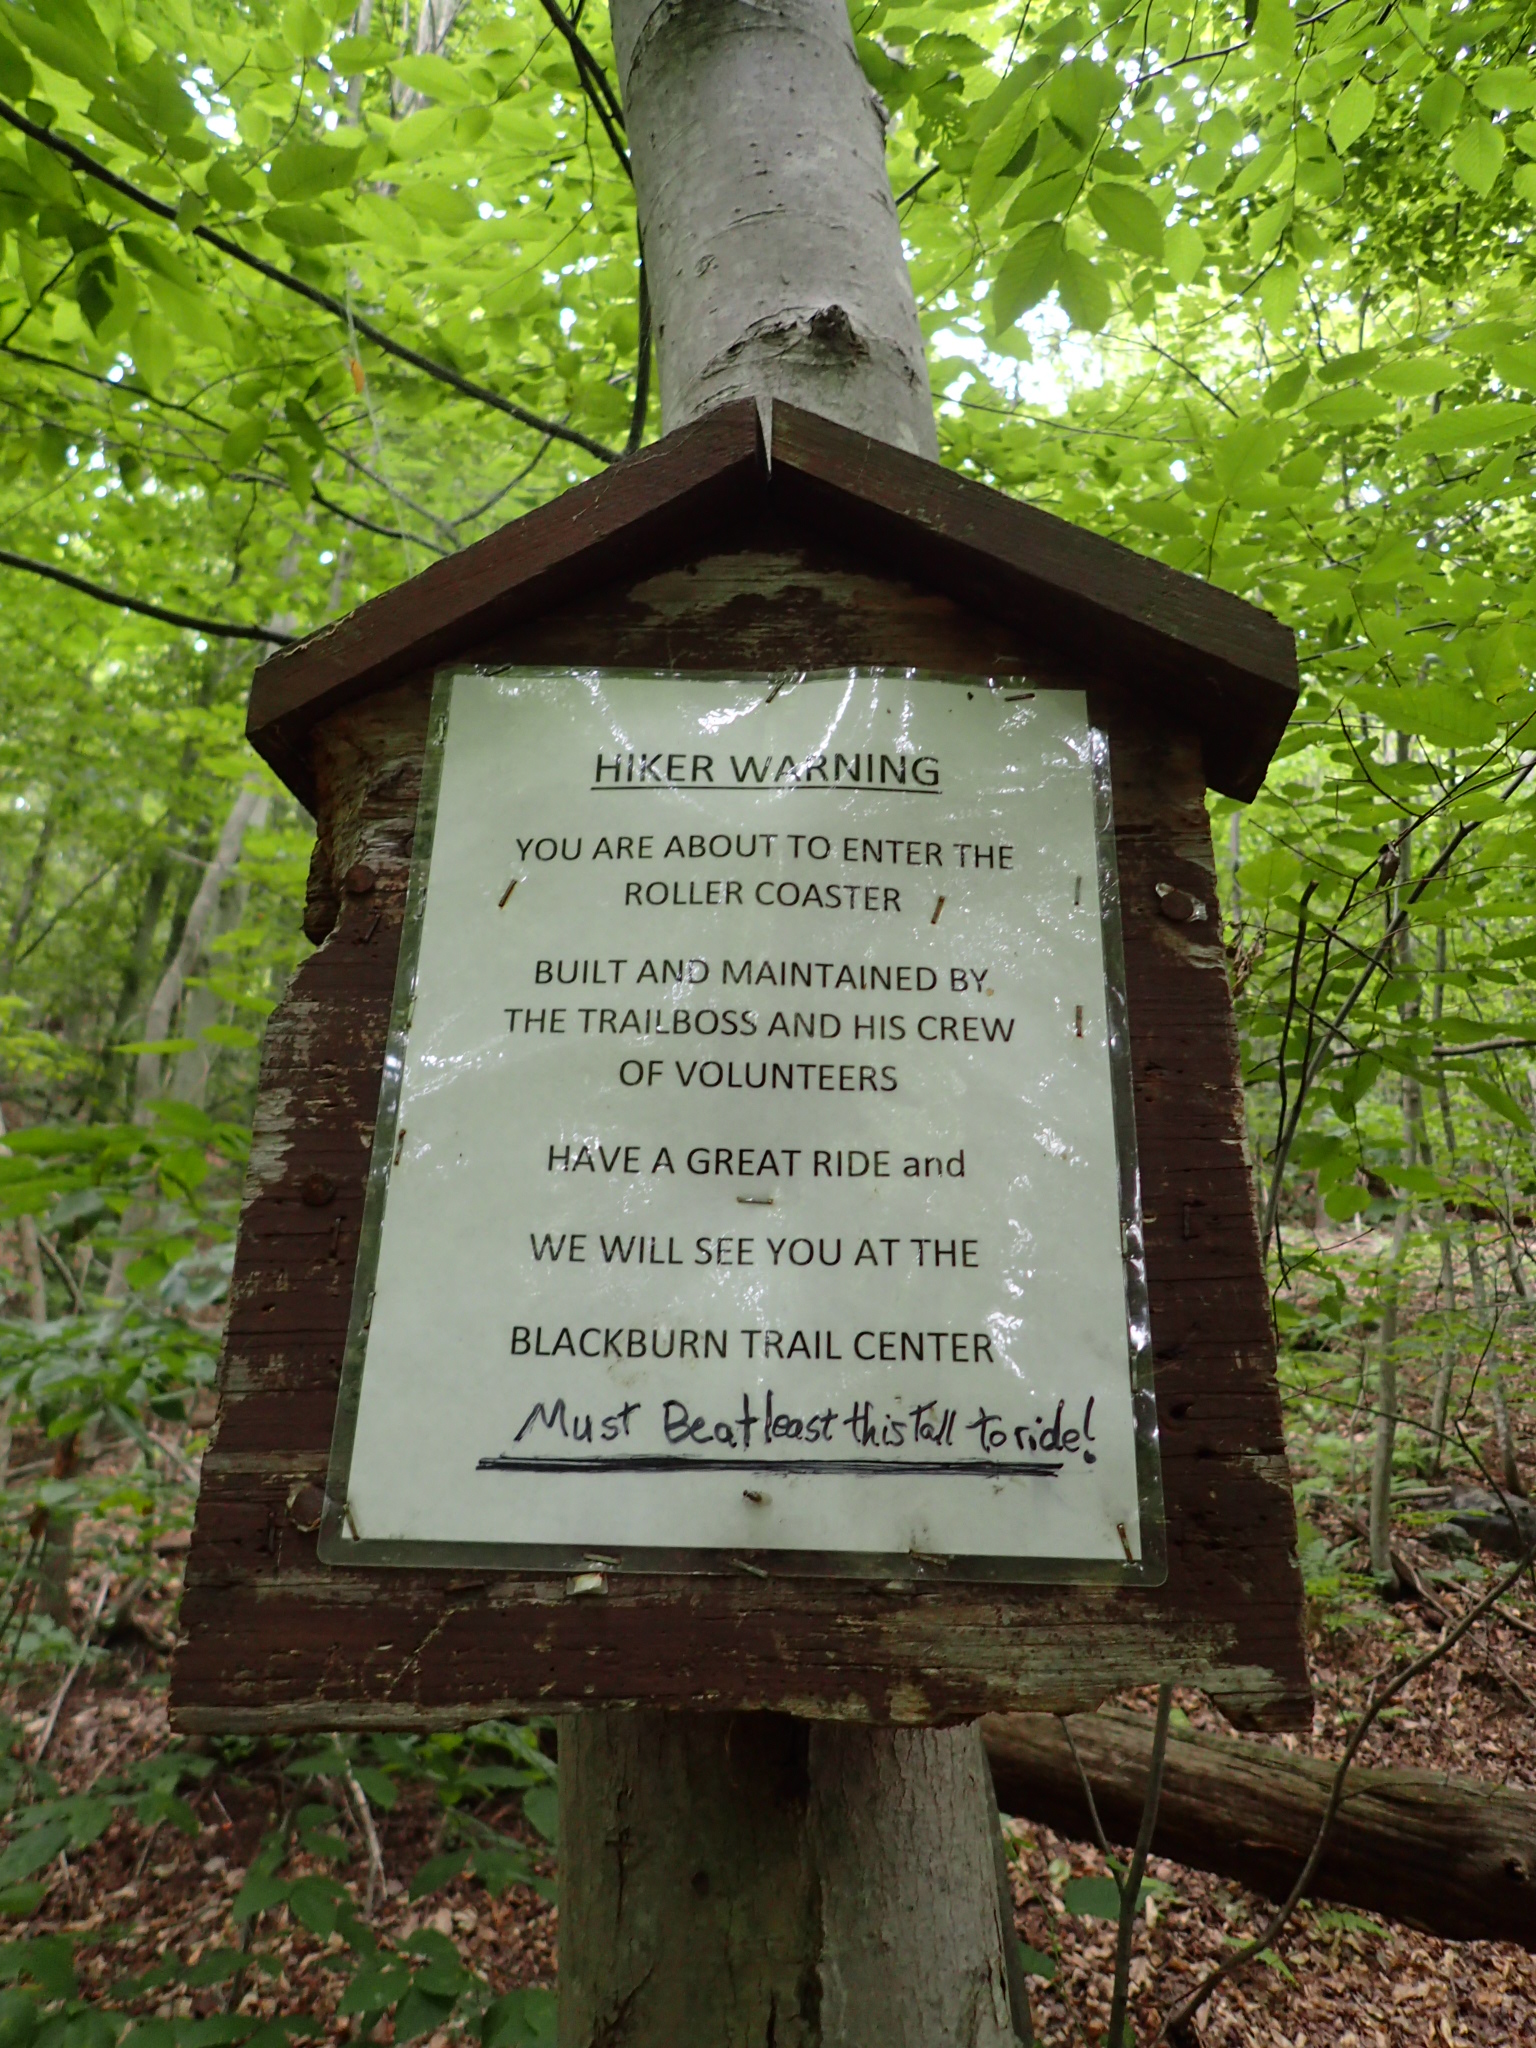 HIKER WARNING
YOU ARE ABOUT TO ENTER THE
ROLLER COASTER
BUILT AND MAINTAINED BY
THE TRAILBOSS AND HIS CREW
OF VOLUNTEERS
HAVE A GREAT RIDE and
WE WILL SEE YOU AT THE
BLACKBURN TRAIL CENTER
Must Be at least this Tall to ride!